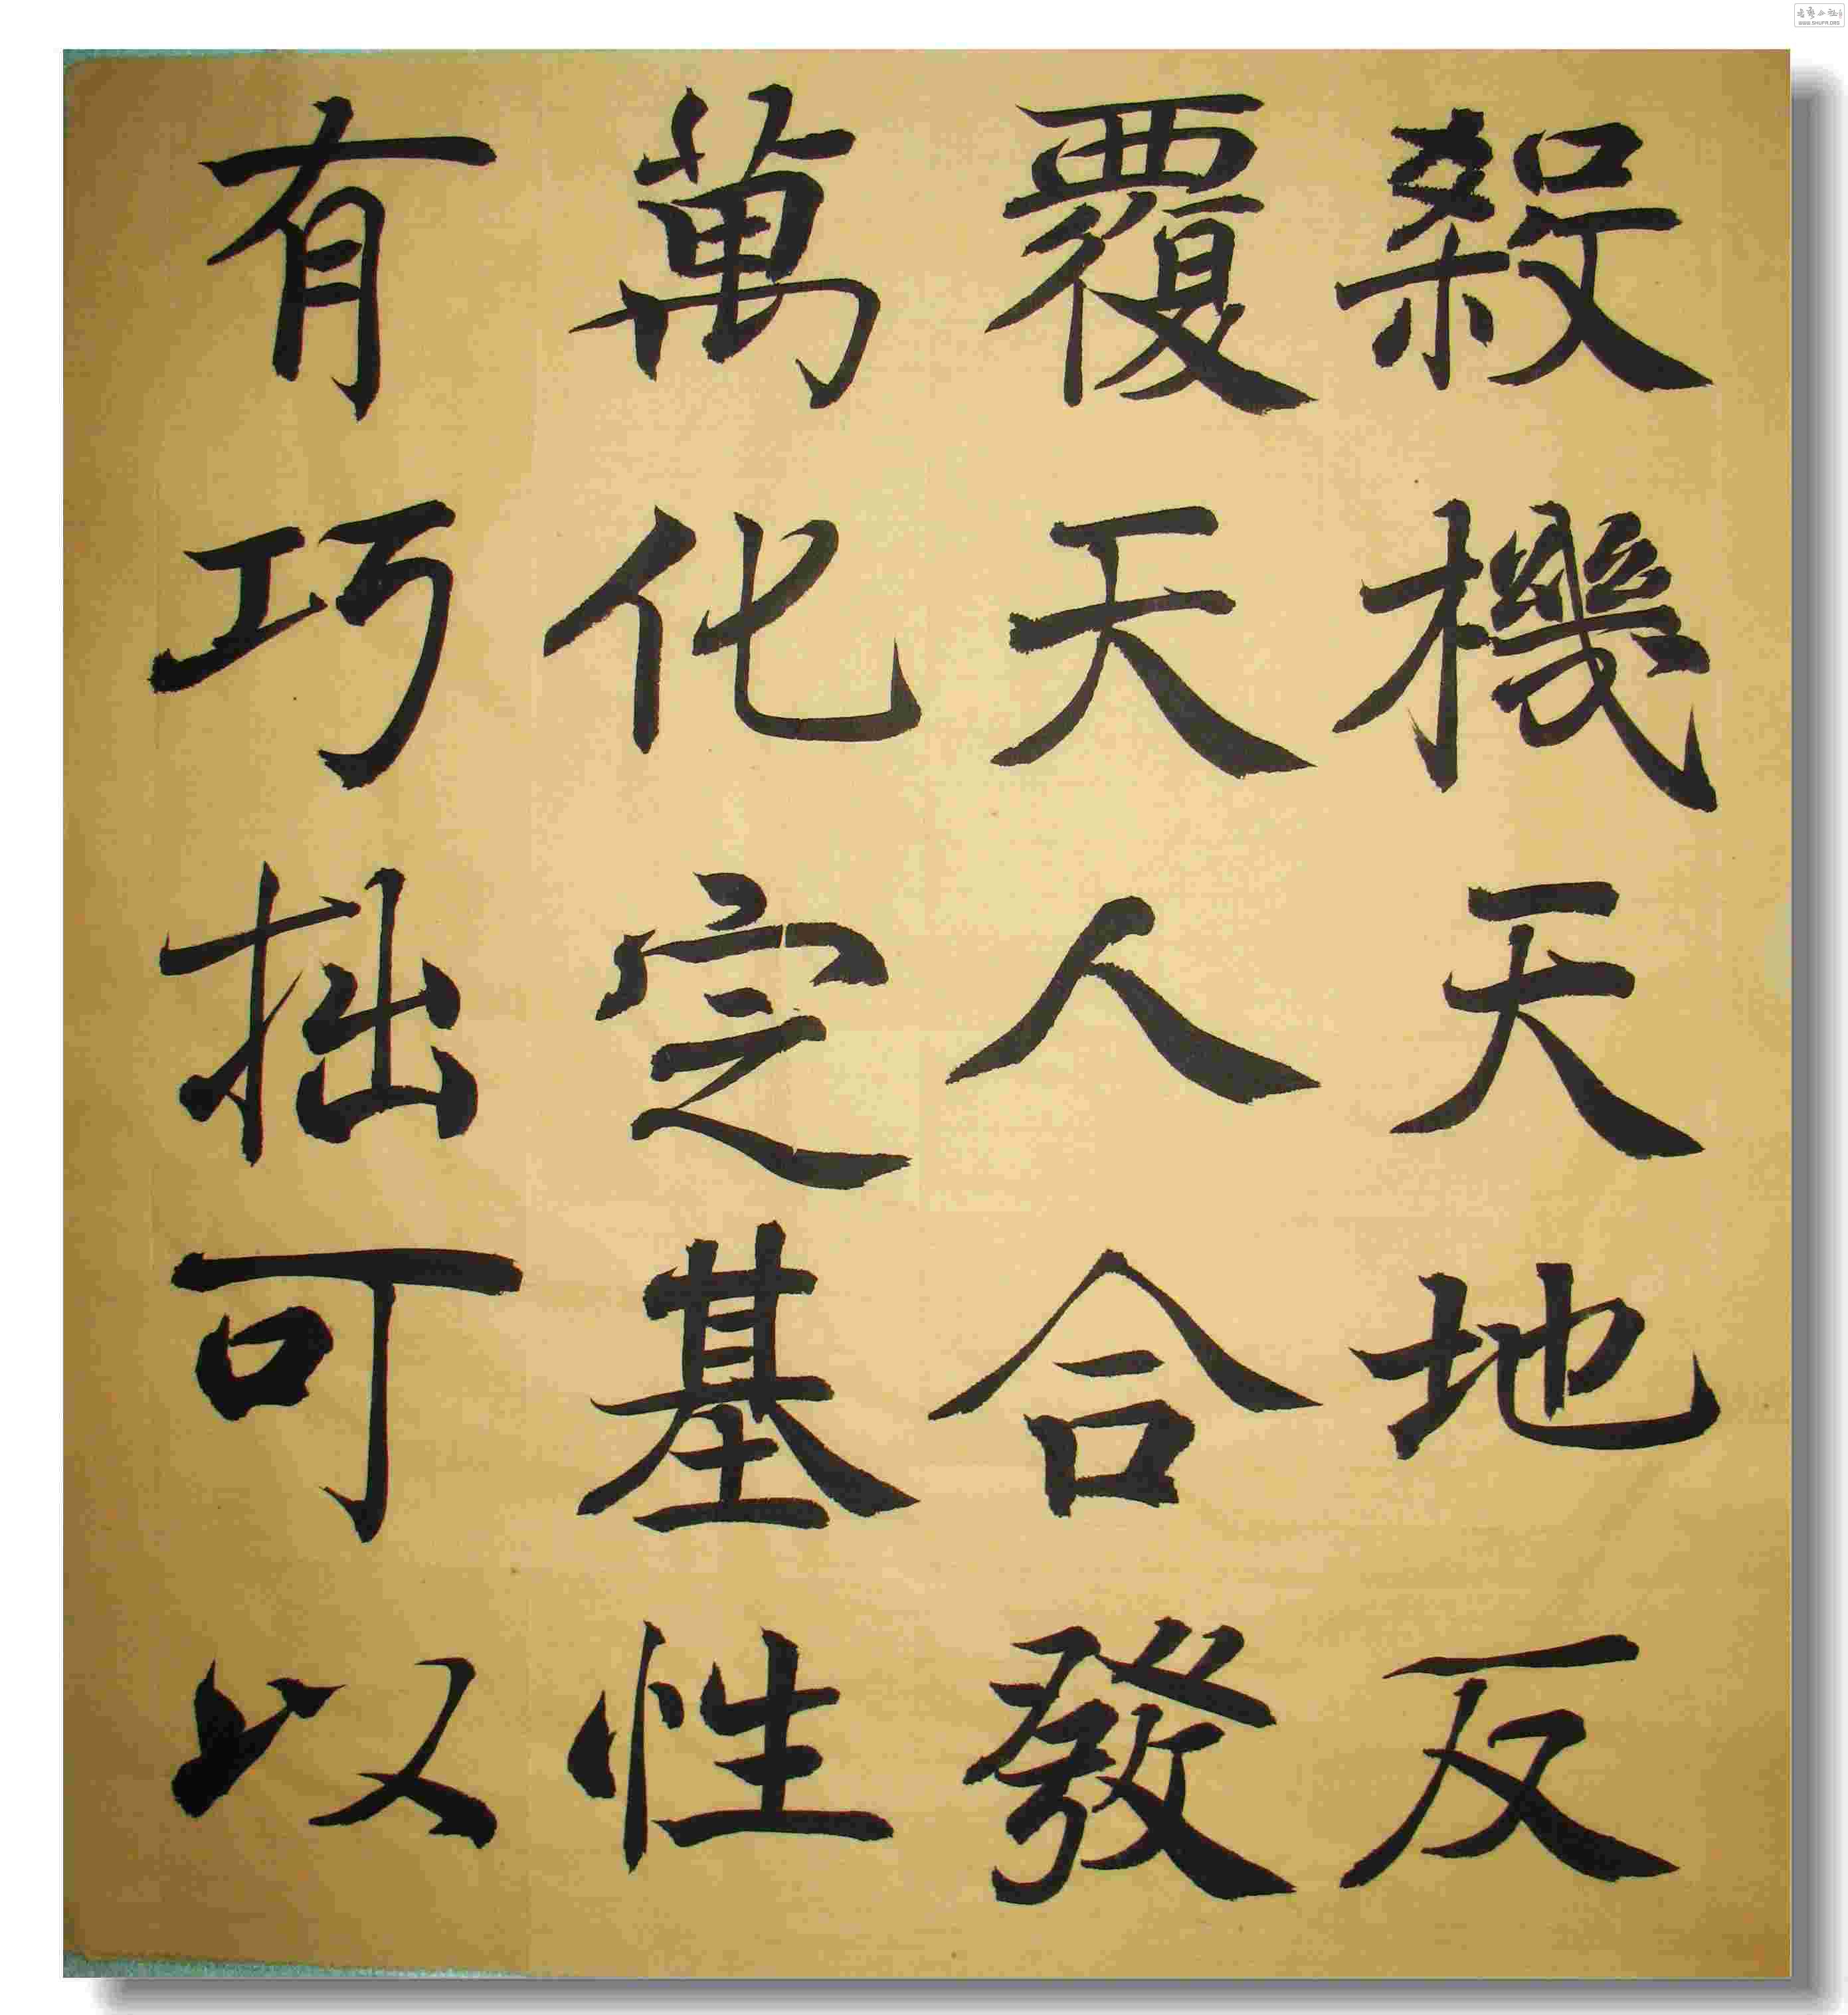 殺機天地反
覆天人合發
萬化定基性
有巧拙可以
WWW.SHUFA.ORG